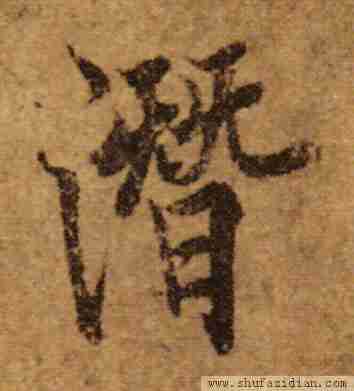 潛
www.shufazidian.com